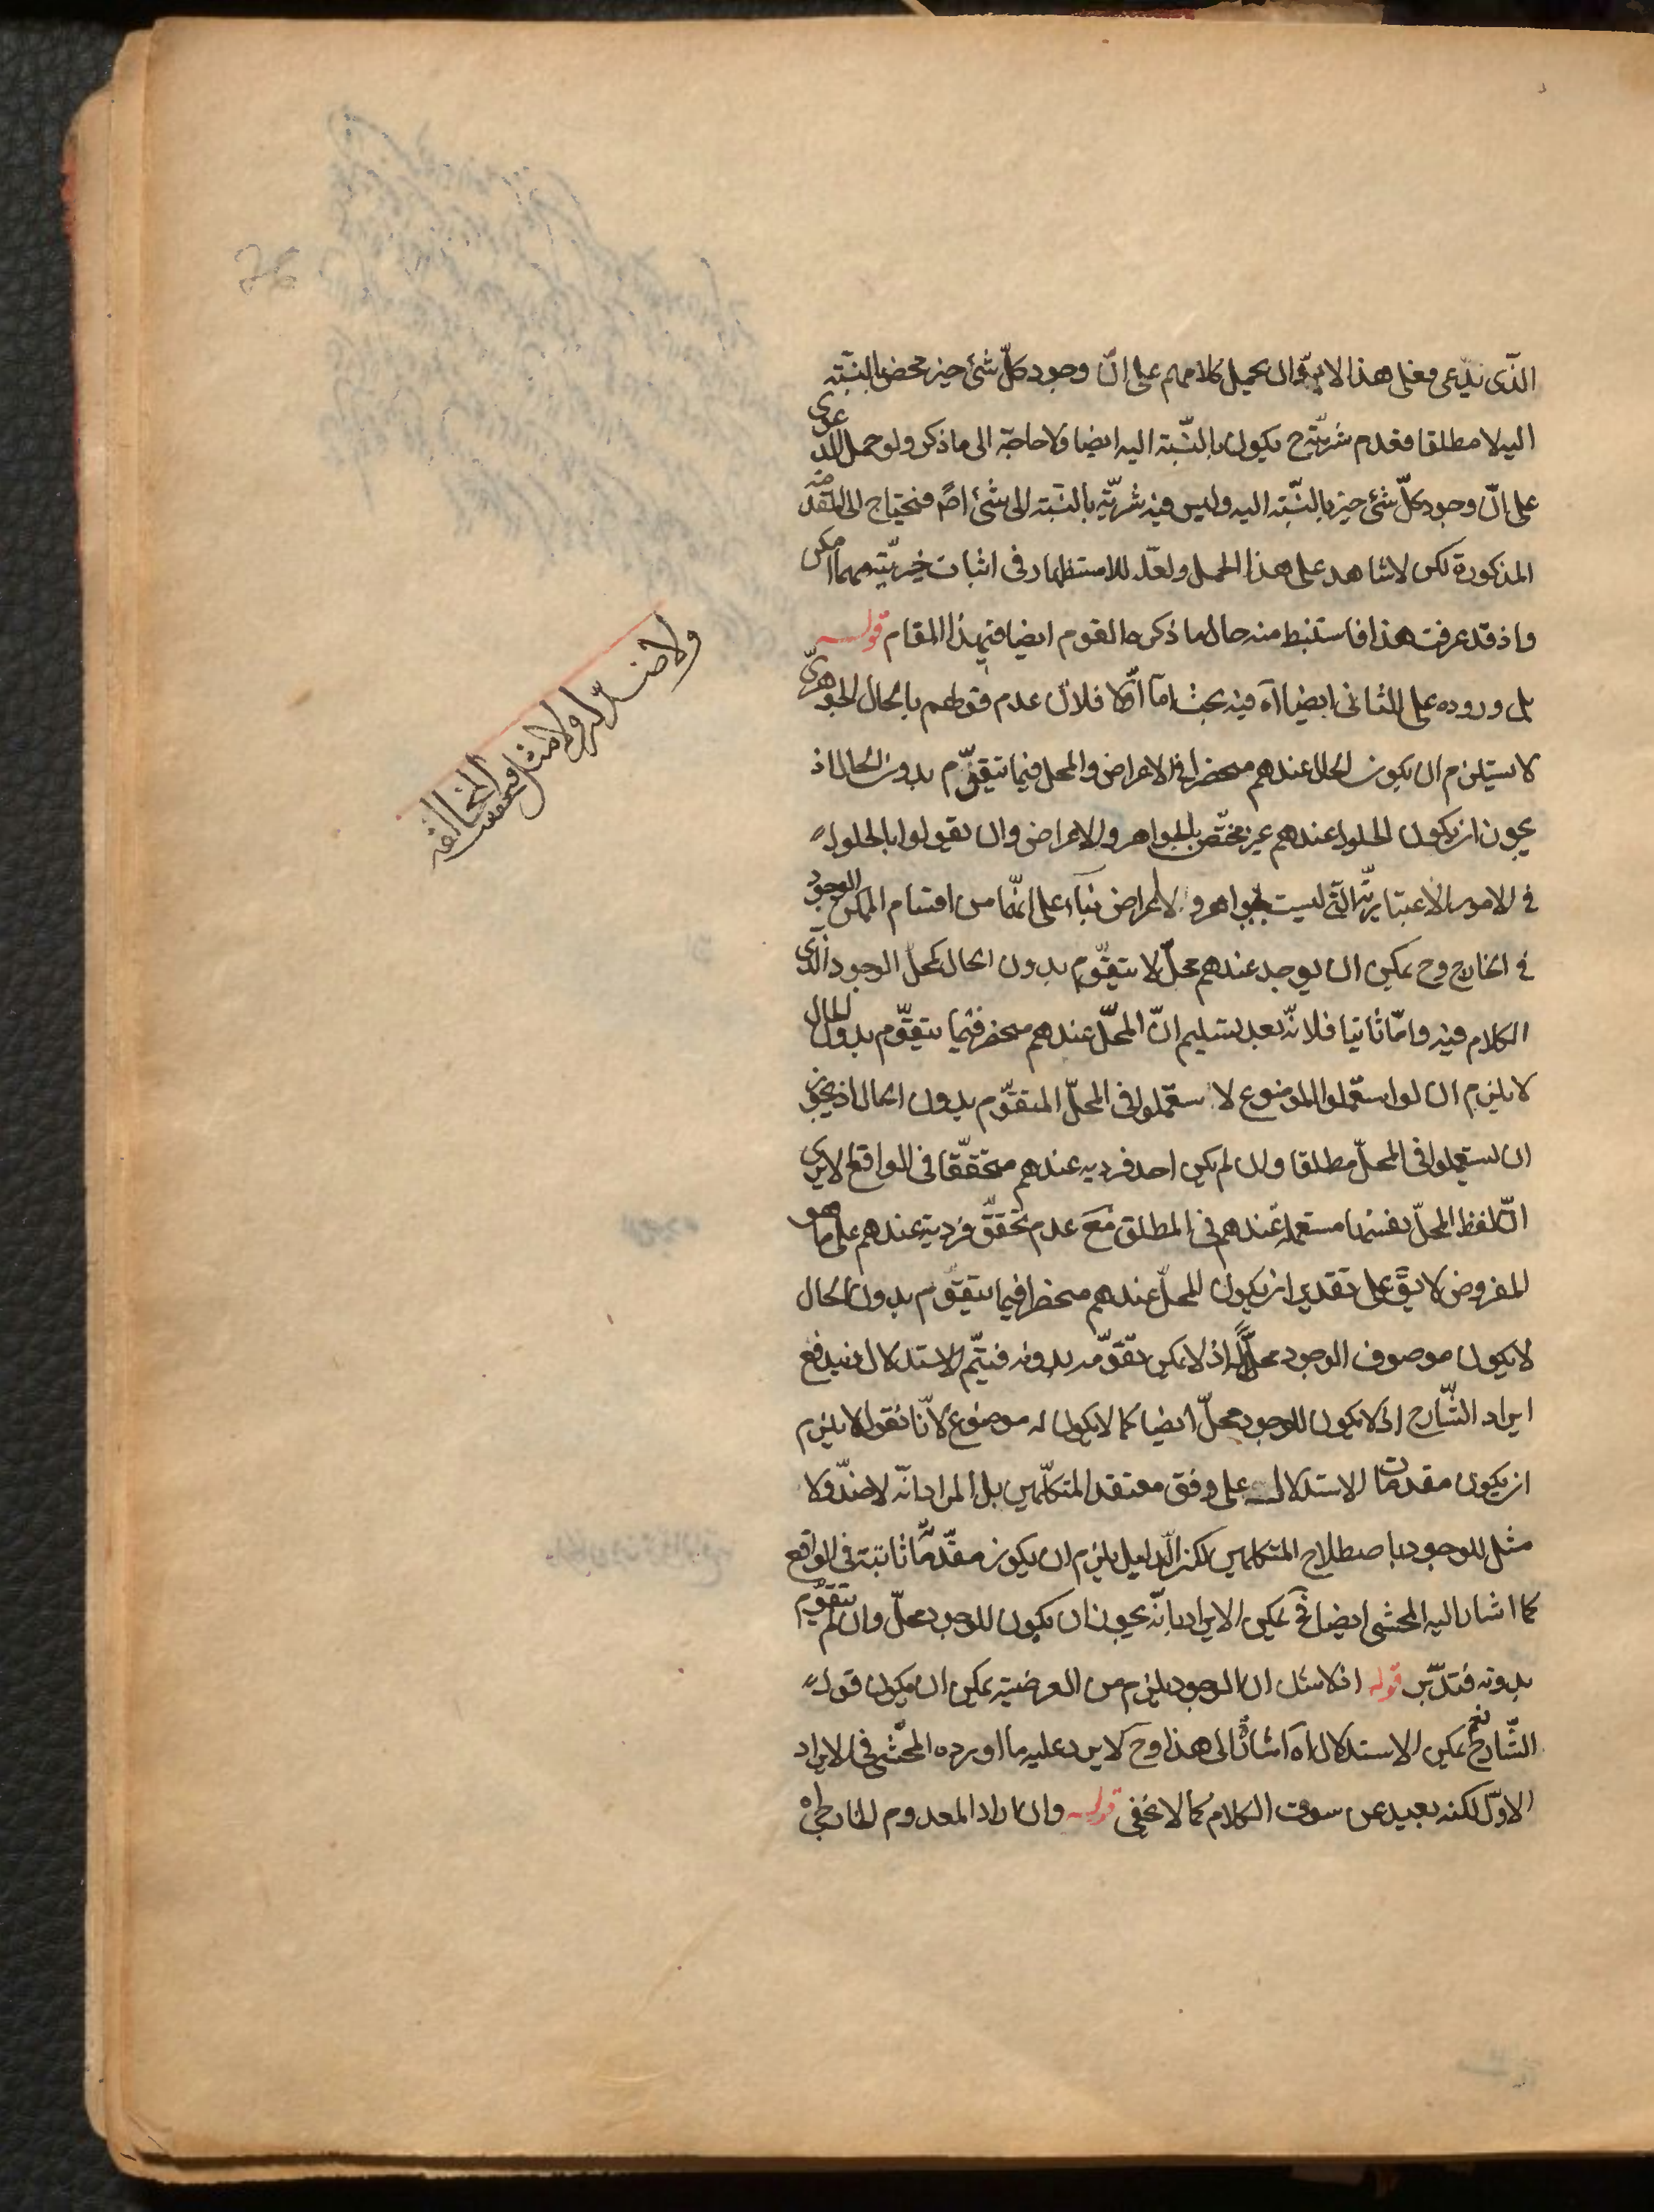 الذى يدعى فعلى هذا لا بد وان يحمل كلامهم على انّ وجود كلّ شئ خير محض بالنسبة
اليه لا مطلقا فعدم شريّته ح يكون بالنّسبة اليه ايضا ولا حاجة الى ما ذكر ولو حمل الدعوى
على انّ وجود كلّ شئ خير بالنّسبة اليه وليس فيه شريّة بالنسبة الى شئ اصلا فتحتاج الى المقدمة
المذكورة لكن لا شاهد على هذا الحمل ولعلّه للاستظهار فى اثبات خيريّته مهما امكن
واذ قد عرفت هذا فاستنبط منه حال ما ذكره القوم ايضا فى هذا المقام قوله
بل وروده على الثانى ايضا اه فيه بحث امّا اوّلا فلانّ عدم قولهم بالحال الجوهرىّ
لا يستلزم ان يكون الحال عندهم منحصرا فى الاعراض والمحل فيما يتقوّم بدون الحال اذ
يجوز ان يكون الحلول عندهم غير مختصّ بالجواهر والاعراض وان يقولوا بالحلول
فى الامور الاعتباريّة التى ليست بجواهر ولا اعراض بناء على انّهما من اقسام الممكن الموجود
فى الخارج وح يمكن ان يوجد عندهم محلّ لا يتقوّم بدون الحال كمحلّ الوجود الذى
الكلام فيه وامّا ثانيا فلانّه بعد تسليم انّ المحلّ عندهم منحصر فيما يتقوّم بدون الحال
لا يلزم ان لو استعملوا الموضوع لا ستعملوا فى المحلّ المتقوّم بدون الحال اذ يجوز
ان يستعملوا فى المحلّ مطلقا وان لم يكن احد فرديه عندهم متحقّقا فى الواقع الا يرى
انّ لفظ المحلّ بنفسها مستعملة عندهم فى المطلق مع عدم تحقّق فرديه عندهم على ما هو
المفروض لا يقَ على تقدير ان يكون المحلّ عندهم منحصرا فيما يتقوّم بدون الحال
لا يكون موصوف الوجود محلّا له اذ لا يمكن تقوّمه بدونه فيتمّ الاستدلال فيندفع
ايراد الشّارح اذ لا يكون للوجود محلّ ايضا كما لا يكون له موضوع لانّا نقول لا يلزم
ان يكون مقدمات الاستدلال على وفق معتقد المتكلّمين بل المراد انّه لا ضدّ ولا
مثل للوجود باصطلاح المتكلمين لكن الّدليل يلزم ان يكون مقدّماته ثابتة فى الواقع
كما اشار اليه المحشى ايضا فح يمكن الايراد بانّه يجوز ان يكون للوجود محلّ وان لم يتقوّم
بدونه فتدبّر قوله اذ لا شك ان الوجود يلزم من العرضيّة يمكن ان يكون قول
الشّارح نعم يمكن الاستدلال اه اشارة الى هذا وح لا يرد عليه ما اورده المحشّى فى الايراد
الاوّل لكنه بعيد عن سوق الكلام كما لا يخفى قوله وان اراد المعدوم الخارجىّ
ولا ضد له ولا مثل
فتحققت المخالفه
76